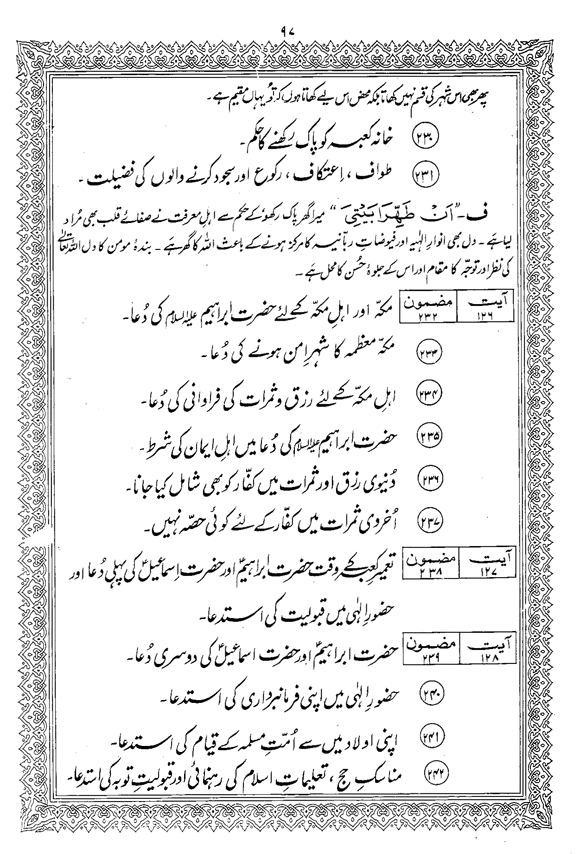 ۹۷
پھر بھی اس شہر کی قسم نہیں کھاتا بلکہ محض اس لیے کھاتا ہوں کہ تو یہاں مقیم ہے۔
۲۳۰ خانہ کعبہ کو پاک رکھنے کا حکم۔
۲۳۱ طواف ، اِعتکاف ، رکوع اور سجود کرنے والوں کی فضیلت۔
ف۔ ”اَنْ طَهِّرَا بَيْتِيَ“ میرا گھر پاک رکھو کے حکم سے اہلِ معرفت نے صفائے قلب بھی مُراد
لیا ہے۔ دل بھی انوارِ الٰہیہ اور فیوضاتِ ربّانیہ کا مرکز ہونے کے باعث اللہ کا گھر ہے۔ بندۂ مومن کا دل اللہ تعالیٰ
کی نظر اور توجّہ کا مقام اور اس کے جلوۂ حُسن کا محل ہے۔
آیت ۱۲۶ مضمون ۲۳۲ مکّہ اور اہلِ مکّہ کے لئے حضرت ابراہیم علیہ السلام کی دُعا۔
۲۳۳ مکّہ معظمہ کا شہرِ امن ہونے کی دُعا۔
۲۳۴ اہلِ مکّہ کے لئے رزق و ثمرات کی فراوانی کی دُعا۔
۲۳۵ حضرت ابراہیم علیہ السلام کی دُعا میں اہلِ ایمان کی شرط۔
۲۳۶ دُنیوی رزق اور ثمرات میں کفّار کو بھی شامل کیا جانا۔
۲۳۷ اُخروی ثمرات میں کفّار کے لئے کوئی حصّہ نہیں۔
آیت ۱۲۷ مضمون ۲۳۸ تعمیرِ کعبہ کے وقت حضرت ابراہیمؑ اور حضرت اِسماعیلؑ کی پہلی دُعا اور
حضورِ الٰہی میں قبولیت کی استدعا۔
آیت ۱۲۸ مضمون ۲۳۹ حضرت ابراہیمؑ اور حضرت اسماعیلؑ کی دوسری دُعا۔
۲۴۰ حضورِ الٰہی میں اپنی فرمانبرداری کی استدعا۔
۲۴۱ اپنی اولاد میں سے اُمّتِ مسلمہ کے قیام کی استدعا۔
۲۴۲ مناسکِ حج ، تعلیماتِ اسلام کی رہنمائی اور قبولیتِ توبہ کی استدعا۔